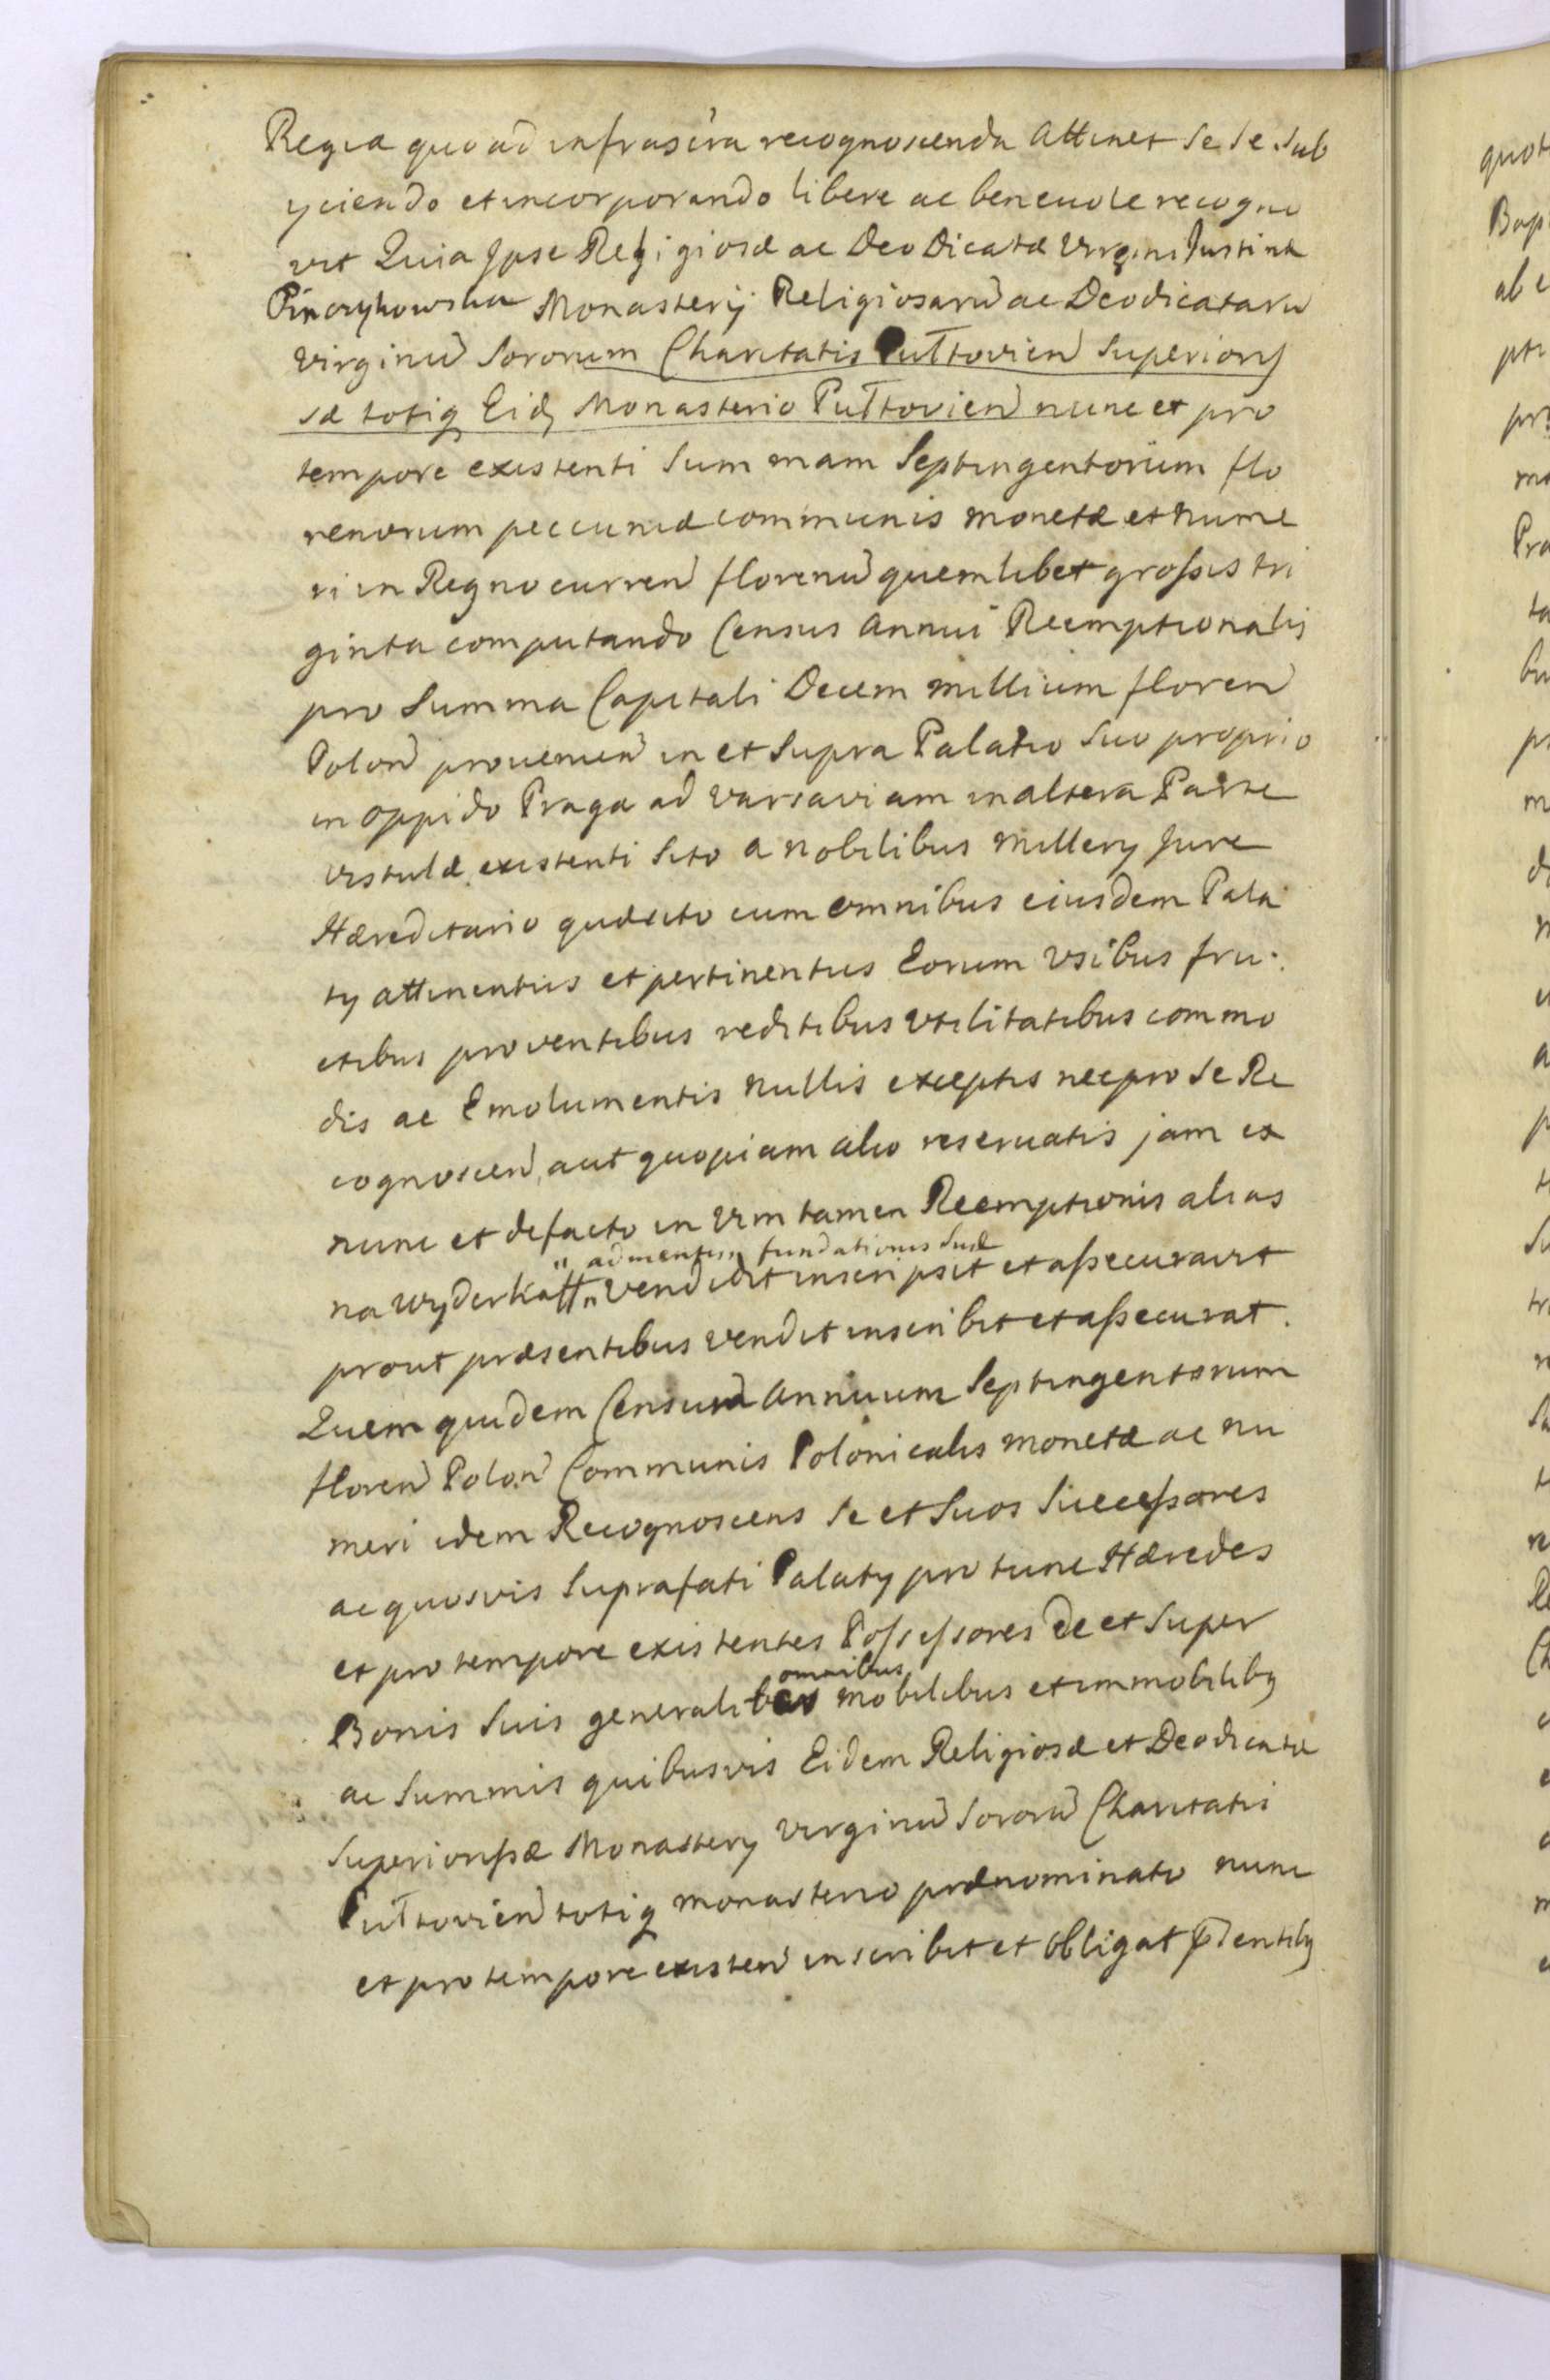 Regia quoad infrascra recognoscenda attinet se se sub
yciendo et incorporando libere ac beneuole recogno
vit Quia Jpse Religiosæ ac Deo Dicatæ Virgini Justinæ
Pinczykowska Monasterij Religiosarū ac Deodicatarū
virginū Sororum Charitatis Pułtovien̄ Superioris
sæ totiq Eid Monasterio Pułtovien̄ nunc et pro
tempore existenti Summam Septingentorum flo
renorum peccuniæ communis monetæ et nume
ri in Regno curren̄ florenū quemlibet grossis tri
ginta computando Census Annui Reemptionalis
pro Summa Capitali Decem millium floren̄
Polon̄ prouenien̄ in et Supra Palatio Suo proprio
in oppido Praga ad Varsaviam in altera Parte
Vistulæ existenti Sito a Nobilibus Millery Jure
Hæreditario quæsito cum omnibus eiusdem Pala
ty attinentiis et pertinentiis Eorum Vsibus fru
ctibus proventibus reditibus Vtilitatibus commo
dis ac Emolumentis nullis exceptis nec pro se Re
cognoscen̄ aut quopiam alio reseruatis jam ex
nunc et defacto in Vim tamen Reemptionis alias
" ad mentem fundationis Suæ
na Wyderkaff " vendidit inscripsit et assecuravit
prout præsentibus vendit inscribit et assecurat.
Quem quidem Censum Annuum Septingentorum
floren̄ Polon̄ Communis Polonicalis monetæ ac nu
meri idem Recognoscens Se et Suos Successores
ac quosvis Suprafati Palaty pro tunc Hæredes
et pro tempore existentes Possessores de et Super
omnibus
Bonis Suis generalibus mobilibus et immobilibq
ac Summis quibusvis Eidem Religiosæ et Deodicatæ
Superiorissæ Monastery Virginū Sororū Charitatis
Pułtovien̄ totiq monasterio prænominato nunc
et pro tempore existen̄ inscribit et obligat p̄ntibq